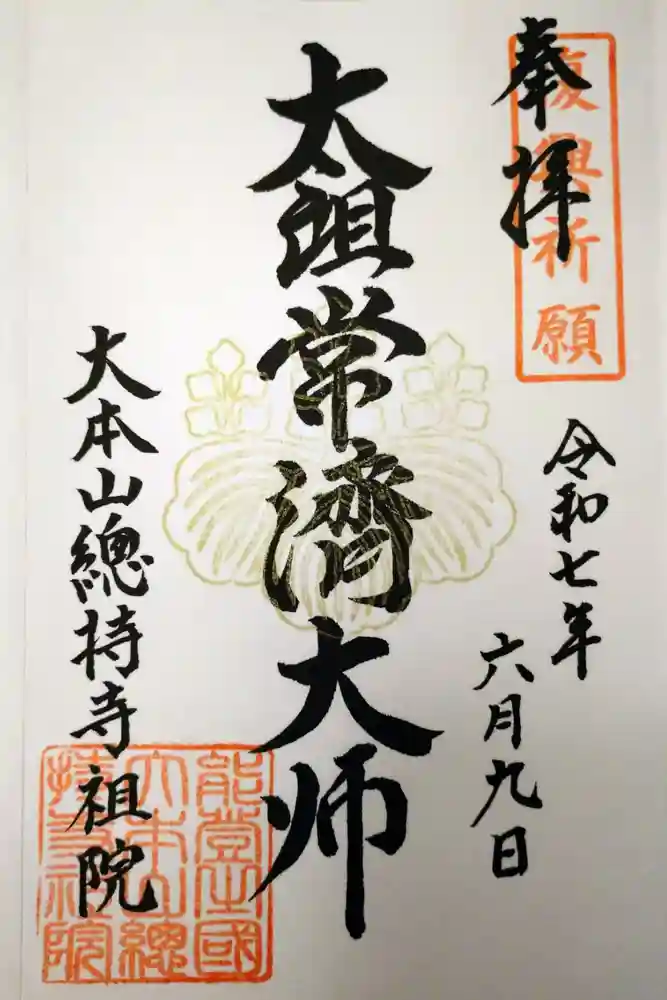 奉拝
復興祈願
令和七年
六月九日
太祖常濟大师
大本山總持寺祖院
能登國
大本山總
持寺祖院